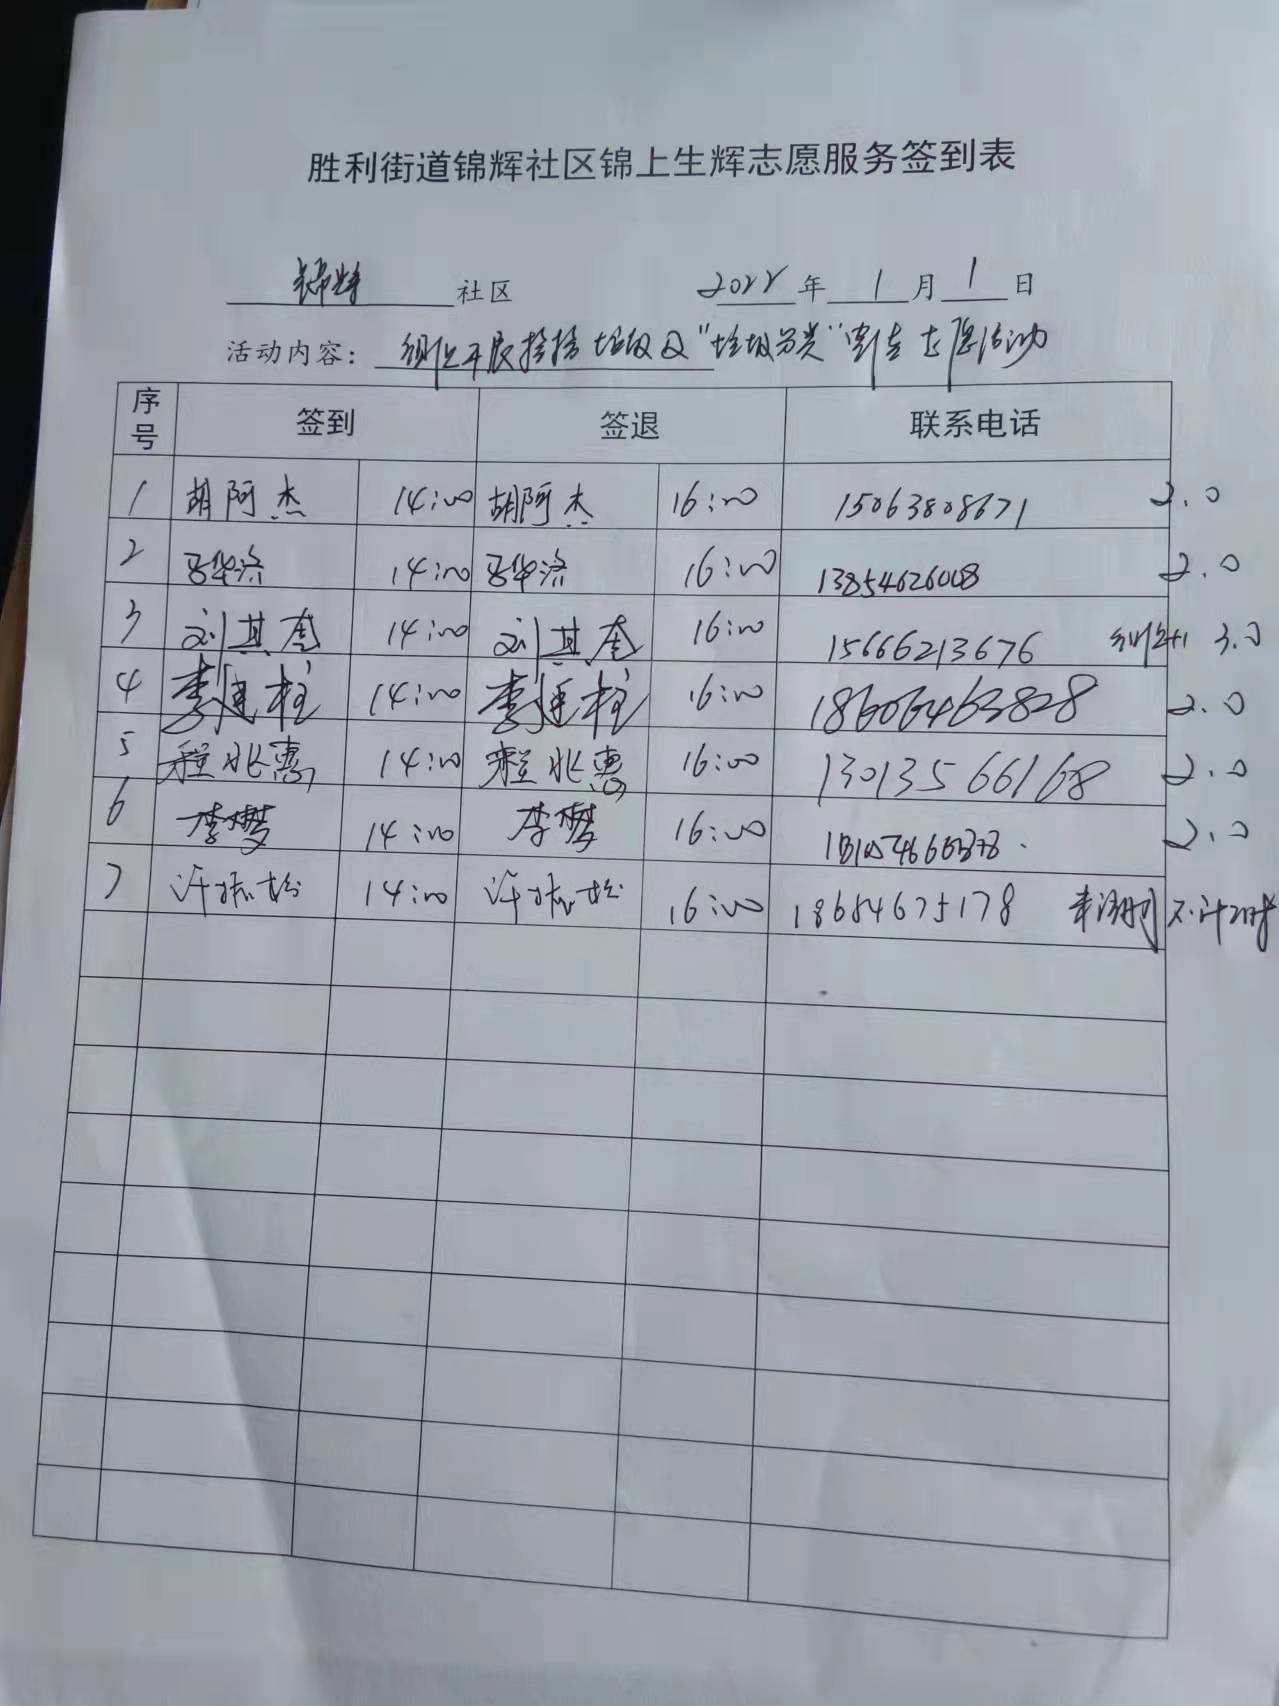 胜利街道锦辉社区锦上生辉志愿服务签到表
锦辉 社区 2022 年 1 月 1 日
活动内容： 组织开展捡拾垃圾及“垃圾分类”宣传志愿活动
序号 签到 签退 联系电话
1 胡阿杰 14:00 胡阿杰 16:00 15063808671 2.0
2 华济 14:00 华济 16:00 13854626008 2.0
3 刘其奎 14:00 刘其奎 16:00 15666213676 组织+1 3.0
4 李廷柱 14:00 李廷柱 16:00 18606463828 2.0
5 程兆惠 14:00 程兆惠 16:00 13013566168 2.0
6 李梦 14:00 李梦 16:00 2.0
7 许 14:00 许 16:00 18654675178 未注册 不计时